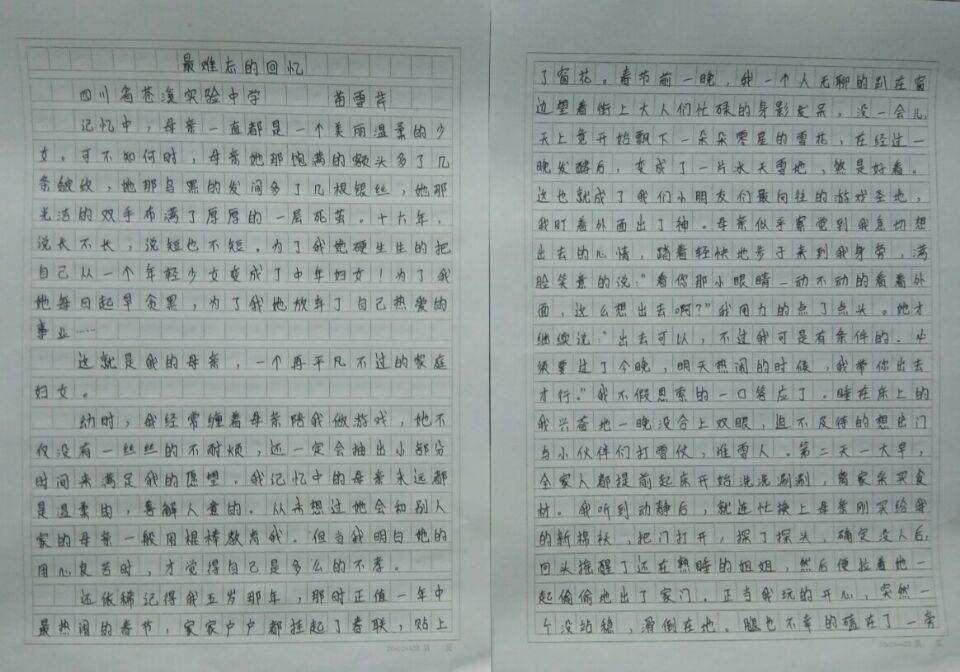 最难忘的回忆
四川省苍溪实验中学 苗雪芹
记忆中，母亲一直都是一个美丽温柔的少
女。可不知何时，母亲她那饱满的额头多了几
条皱纹，她那乌黑的发间多了几根银丝，她那
光洁的双手布满了厚厚的一层死茧。十六年，
说长不长，说短也不短。为了我她硬生生的把
自己从一个年轻少女变成了中年妇女！为了我
她每日起早贪黑，为了我她放弃了自己热爱的
事业……
这就是我的母亲，一个再平凡不过的家庭
妇女。
幼时，我经常缠着母亲陪我做游戏，她不
仅没有一丝丝的不耐烦，还一定会抽出小部分
时间来满足我的愿望。我记忆中的母亲永远都
是温柔的，善解人意的。从未想过她会和别人
家的母亲一般用棍棒教育我。但当我明白她的
用心良苦时，才觉得自己是多么的不孝。
还依稀记得我五岁那年，那时正值一年中
最热闹的春节，家家户户都挂起了春联，贴上
了窗花。春节前一晚，我一个人无聊的趴在窗
边望着街上大人们忙碌的身影发呆。没一会儿，
天上竟开始飘下一朵朵零星的雪花，在经过一
晚发酵后，变成了一片冰天雪地，煞是好看。
这也就成了我们小朋友们最向往的游戏圣地，
我盯着外面出了神。母亲似乎察觉到我急切想
出去的心情，踏着轻快地步子来到我身旁，满
脸笑意的说：“看你那小眼睛一动不动的看着外
面，这么想出去啊？”我用力的点了点头。她才
继续说：“出去可以，不过我可是有条件的。必
须要过了今晚，明天热闹的时候，我带你出去
才行。”我不假思索的一口答应了。睡在床上的
我兴奋地一晚没合上双眼，迫不及待的想出门
与小伙伴们打雪仗，堆雪人。第二天一大早，
全家人都提前起床开始洗洗涮涮，离家采买食
材。我听到动静后，就连忙换上母亲刚买给我
的新棉袄，把门打开，探了探头，确定没人后，
回头摇醒了还在熟睡的姐姐，然后便拉着她一
起偷偷地出了家门。正当我玩的开心，突然一
个没站稳，滑倒在地。腿也不幸的磕在了一旁